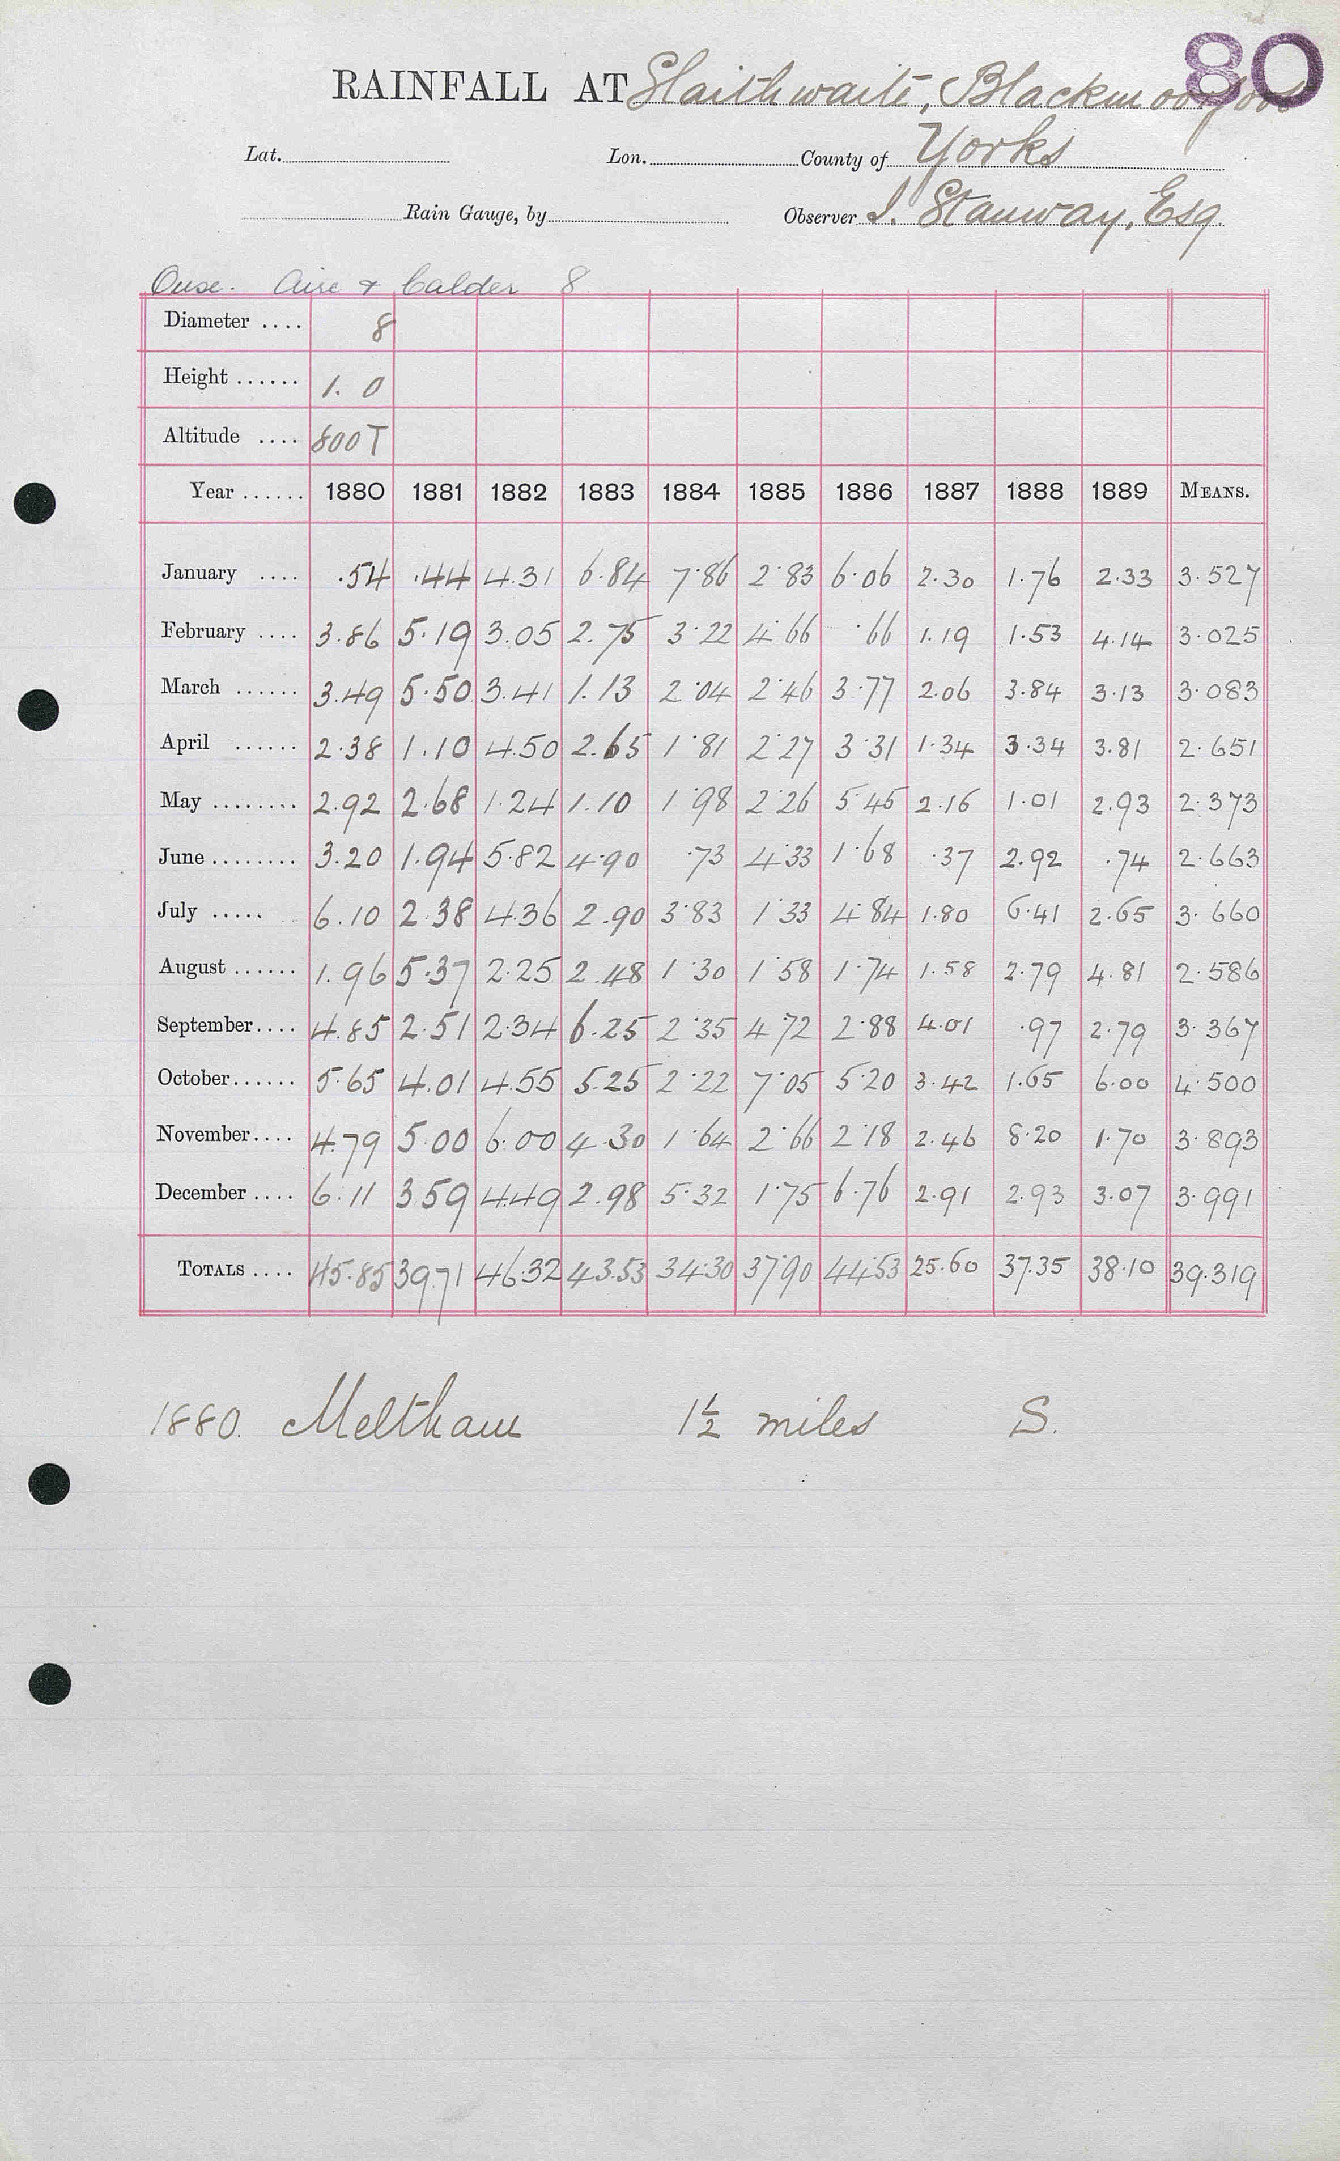 80
RAINFALL AT Slaithwaite, Blackmoorfoot
Lat. Lon. County of Yorks
Rain Gauge, by Observer J. Stanway, Esq.
Ouse. Aire & Calder 8
Diameter .... 8
Height ...... 1. 0
Altitude .... 800T
Year ...... 1880 1881 1882 1883 1884 1885 1886 1887 1888 1889 MEANS.
January .... .54 .44 4.31 6.84 7.86 2.83 6.06 2.30 1.76 2.33 3.527
February .... 3.86 5.19 3.05 2.75 3.22 4.66 .66 1.19 1.53 4.14 3.025
March ...... 3.49 5.50 3.41 1.13 2.04 2.46 3.77 2.06 3.84 3.13 3.083
April ...... 2.38 1.10 4.50 2.65 1.81 2.27 3.31 1.34 3.34 3.81 2.651
May ........ 2.92 2.68 1.24 1.10 1.98 2.26 5.45 2.16 1.01 2.93 2.373
June ........ 3.20 1.94 5.82 4.90 .73 4.33 1.68 .37 2.92 .74 2.663
July ..... 6.10 2.38 4.36 2.90 3.83 1.33 4.84 1.80 6.41 2.65 3.660
August ...... 1.96 5.37 2.25 2.48 1.30 1.58 1.74 1.58 2.79 4.81 2.586
September.... 4.85 2.51 2.34 6.25 2.35 4.72 2.88 4.01 .97 2.79 3.367
October...... 5.65 4.01 4.55 5.25 2.22 7.05 5.20 3.42 1.65 6.00 4.500
November.... 4.79 5.00 6.00 4.30 1.64 2.66 2.18 2.46 8.20 1.70 3.893
December .... 6.11 3.59 4.49 2.98 5.32 1.75 6.76 2.91 2.93 3.07 3.991
TOTALS .... 45.85 39.71 46.32 43.53 34.30 37.90 44.53 25.60 37.35 38.10 39.319
1880. Meltham 1½ miles S.